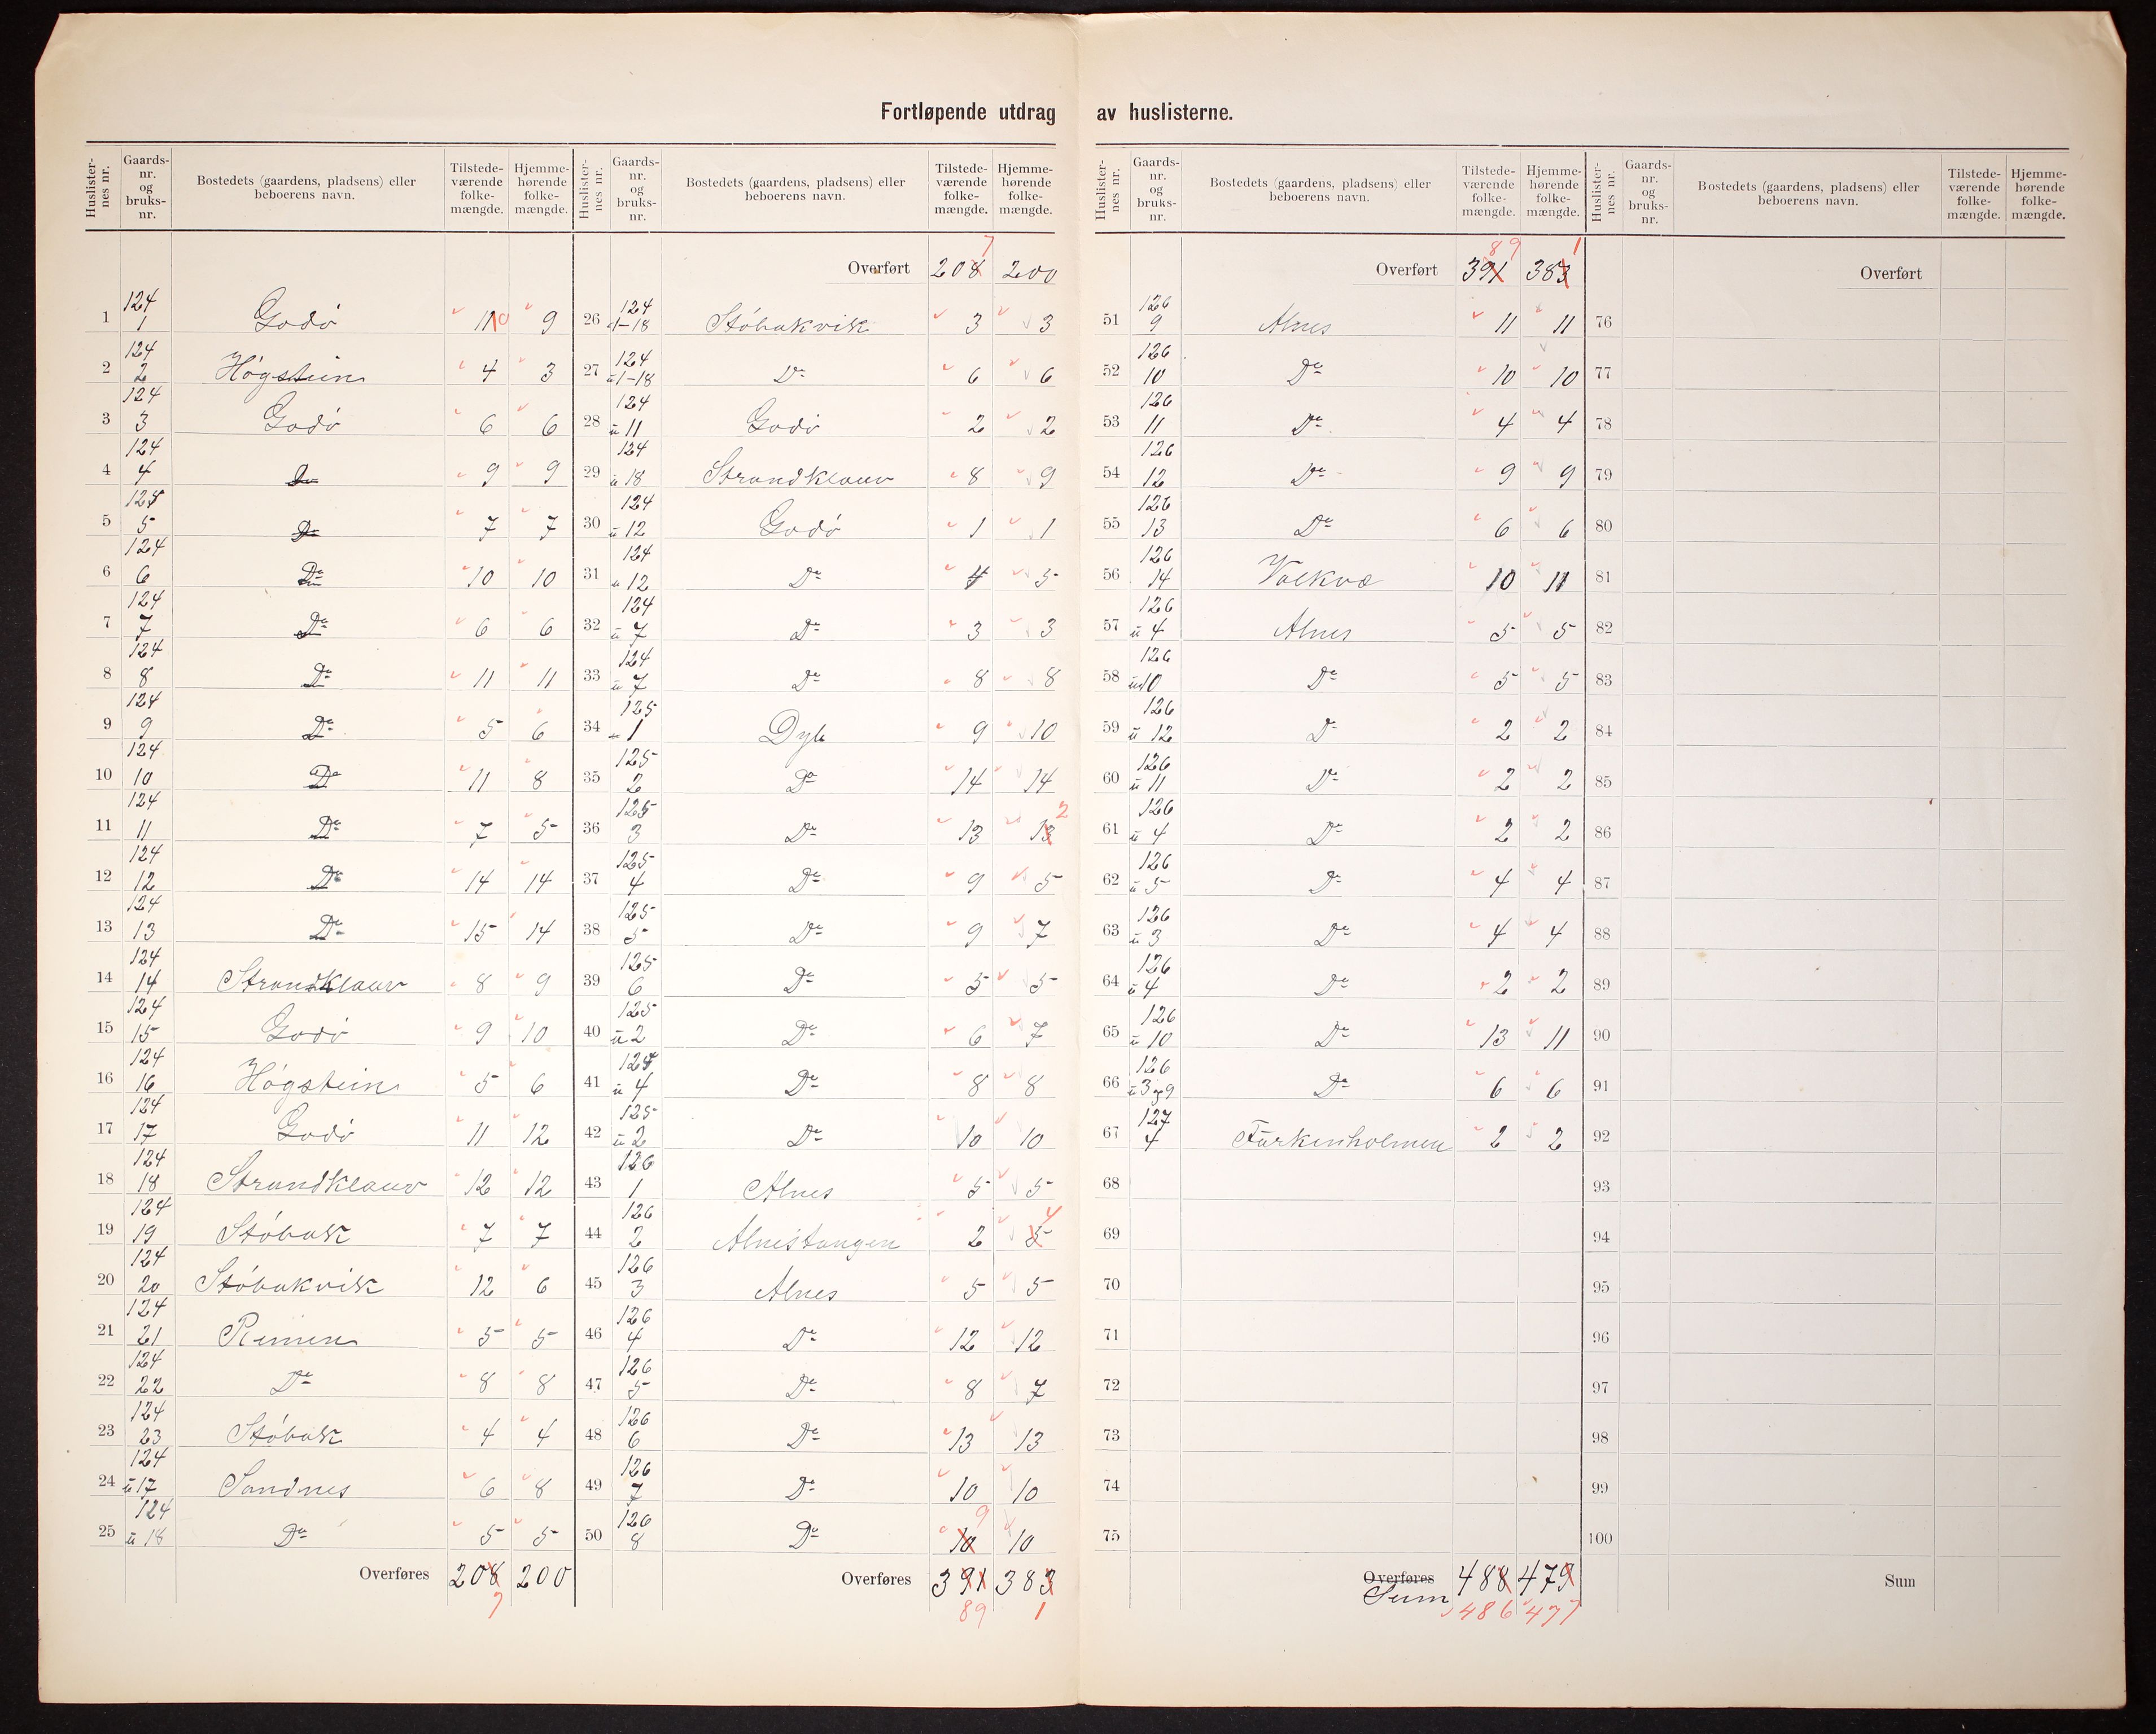 Fortløpende utdrag av huslisterne.
Huslisternes nr. Gaards-nr. og bruks-nr. Bostedets (gaardens, pladsens) eller beboerens navn. Tilstede-værende folke-mængde. Hjemme-hørende folke-mængde.
1 124 1 Godø 11 0 9
2 124 2 Høgstein 4 3
3 124 3 Godø 6 6
4 124 4 Do 9 9
5 124 5 Do 7 7
6 124 6 Do 10 10
7 124 7 Do 6 6
8 124 8 Do 11 11
9 124 9 Do 5 6
10 124 10 Do 11 8
11 124 11 Do 7 5
12 124 12 Do 14 14
13 124 13 Do 15 14
14 124 14 Strandklauv 8 9
15 124 15 Godø 9 10
16 124 16 Høgstein 5 6
17 124 17 Godø 11 12
18 124 18 Strandklauv 12 12
19 124 19 Støbak 7 7
20 124 20 Støbakvik 12 6
21 124 21 Rimen 5 5
22 124 22 Do 8 8
23 124 23 Støbak 4 4
24 124 u 17 Sandnes 6 8
25 124 u 18 Do 5 5
Overføres 208 200
7
Huslisternes nr. Gaards-nr. og bruks-nr. Bostedets (gaardens, pladsens) eller beboerens navn. Tilstede-værende folke-mængde. Hjemme-hørende folke-mængde.
7
Overført 208 200
26 124 1-18 Støbakvik 3 3
27 124 u 1-18 Do 6 6
28 124 u 11 Godø 2 2
29 124 u 18 Strandklauv 8 9
30 124 u 12 Godø 1 1
31 124 u 12 Do 4 5
32 124 u 7 Do 3 3
33 124 u 7 Do 8 8
34 125 1 Dyb 9 10
35 125 2 Do 14 14
36 125 3 Do 13 13 2
37 125 4 Do 9 5
38 125 5 Do 9 7
39 125 6 Do 5 5
40 125 u 2 Do 6 7
41 125 u 4 Do 8 8
42 125 u 2 Do 10 10
43 126 1 Alnes 5 5
44 126 2 Alnestangen 2 5 4
45 126 3 Alnes 5 5
46 126 4 Do 12 12
47 126 5 Do 8 7
48 126 6 Do 13 13
49 126 7 Do 10 10
50 126 8 Do 10 9 10
Overføres 391 383
89 1
Huslisternes nr. Gaards-nr. og bruks-nr. Bostedets (gaardens, pladsens) eller beboerens navn. Tilstede-værende folke-mængde. Hjemme-hørende folke-mængde.
89 1
Overført 391 383
51 126 9 Alnes 11 11
52 126 10 Do 10 10
53 126 11 Do 4 4
54 126 12 Do 9 9
55 126 13 Do 6 6
56 126 14 10 11
57 126 u 4 Alnes 5 5
58 126 u 10 Do 5 5
59 126 u 12 Do 2 2
60 126 u 11 Do 2 2
61 126 u 4 Do 2 2
62 126 u 5 Do 4 4
63 126 u 3 Do 4 4
64 126 u 4 Do 2 2
65 126 u 10 Do 13 11
66 126 u 3 og 9 Do 6 6
67 127 4 Furkenholmen 2 2
68
69
70
71
72
73
74
75
Overføres 488 479
Sum 486 477
Huslisternes nr. Gaards-nr. og bruks-nr. Bostedets (gaardens, pladsens) eller beboerens navn. Tilstede-værende folke-mængde. Hjemme-hørende folke-mængde.
Overført
76
77
78
79
80
81
82
83
84
85
86
87
88
89
90
91
92
93
94
95
96
97
98
99
100
Sum